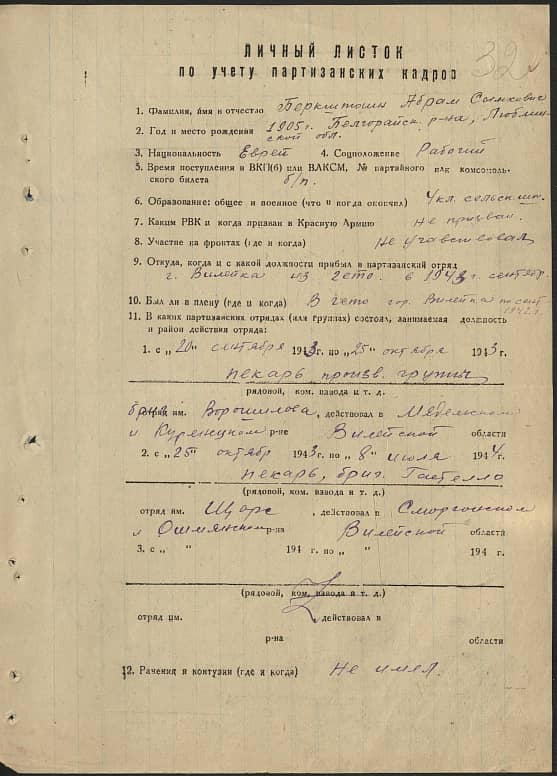 ЛИЧНЫЙ ЛИСТОК 32
по учету партизанских кадров
1. Фамилия, имя и отчество Беркштейн Абрам
2. Год и место рождения 1905 г. Белгорайск. р-на, Люблин-
ской обл.
3. Национальность Еврей 4. Соцположение Рабочий
5. Время поступления в ВКП(б) или ВЛКСМ, № партийного или комсомоль-
ского билета б/п.
6. Образование: общее и военное (что и когда окончил) 4 кл. сельск. шк.
7. Каким РВК и когда призван в Красную Армию Не призван.
8. Участие на фронтах (где и когда) Не участвовал
9. Откуда, когда и с какой должности прибыл в партизанский отряд
г. Вилейка из гето. в 1943 г. сентябр.
10. Был ли в плену (где и когда) В гето гор. Вилейка по сент.
194 г.
11. В каких партизанских отрядах (или группах) состоял, занимаемая должность
и район действия отряда:
1. с „20“ сентября 1943 г. по „25“ октября 1943 г.
пекарь произв. группы
(рядовой, ком. взвода и т. д.)
бриг. отряд им. Ворошилова, действовал в Мядельском
и Куренецком р-не Вилейской области
2. с „25“ октябр 1943 г. по „8“ июля 1944 г.
пекарь, бриг. Гастелло
(рядовой, ком. взвода и т. д.)
отряд им. Щорс, действовал в Сморгонском
и Ошмянском р-на Вилейской области
3. с „ “ 194 г. по „ “ 194 г.
(рядовой, ком. взвода и т. д.)
отряд им. действовал в
р-на области
12. Ранения и контузии (где и когда) Не имел.